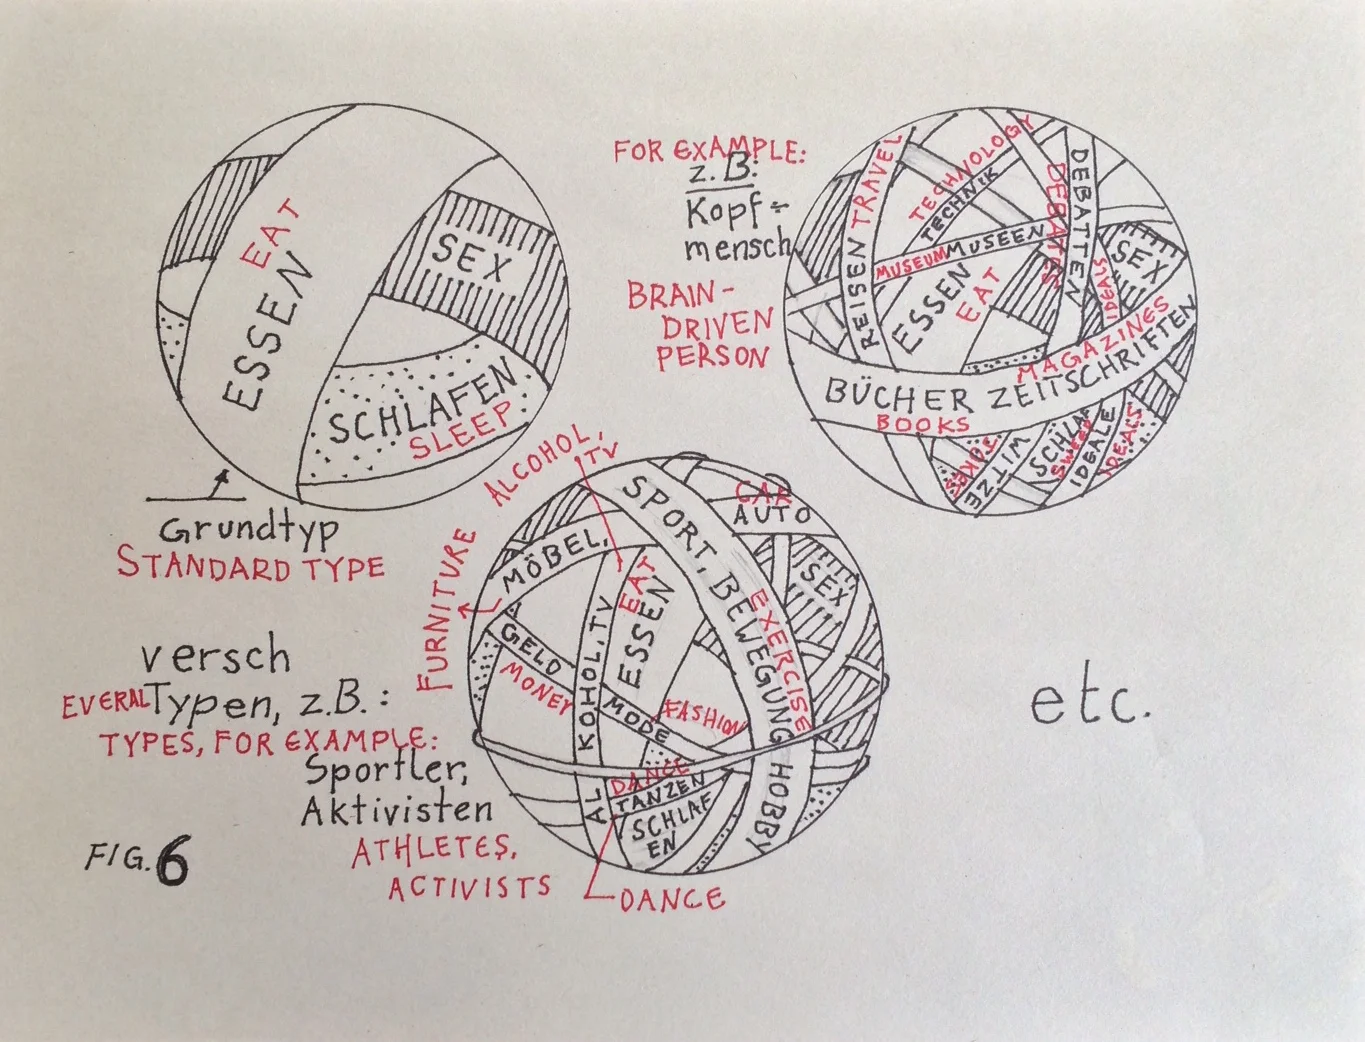 EAT
ESSEN
SEX
SCHLAFEN
SLEEP
Grundtyp
STANDARD TYPE
FOR EXAMPLE:
z.B:
Kopf=
mensch
BRAIN-
DRIVEN
PERSON
REISEN TRAVEL
TECHNOLOGY
TECHNIK
DEBATES
DEBATTEN
MUSEUM MUSEEN
ESSEN
EAT
SEX
IDEALS
MAGAZINES
BÜCHER ZEITSCHRIFTEN
BOOKS
JOKES
WITZE
SCHLAF
IDEALE
IDEALS
ALCOHOL, TV
FURNITURE
MÖBEL,
SPORT, BEWEGUNG HOBBY
EXERCISE
CAR
AUTO
SEX
EAT
ESSEN
GELD
MONEY
ALKOHOL, TV
MODE
FASHION
DANCE
TANZEN
SCHLAF
EN
DANCE
versch
EVERAL Typen, z.B.:
TYPES, FOR EXAMPLE:
Sportler,
Aktivisten
ATHLETES,
ACTIVISTS
FIG. 6
etc.